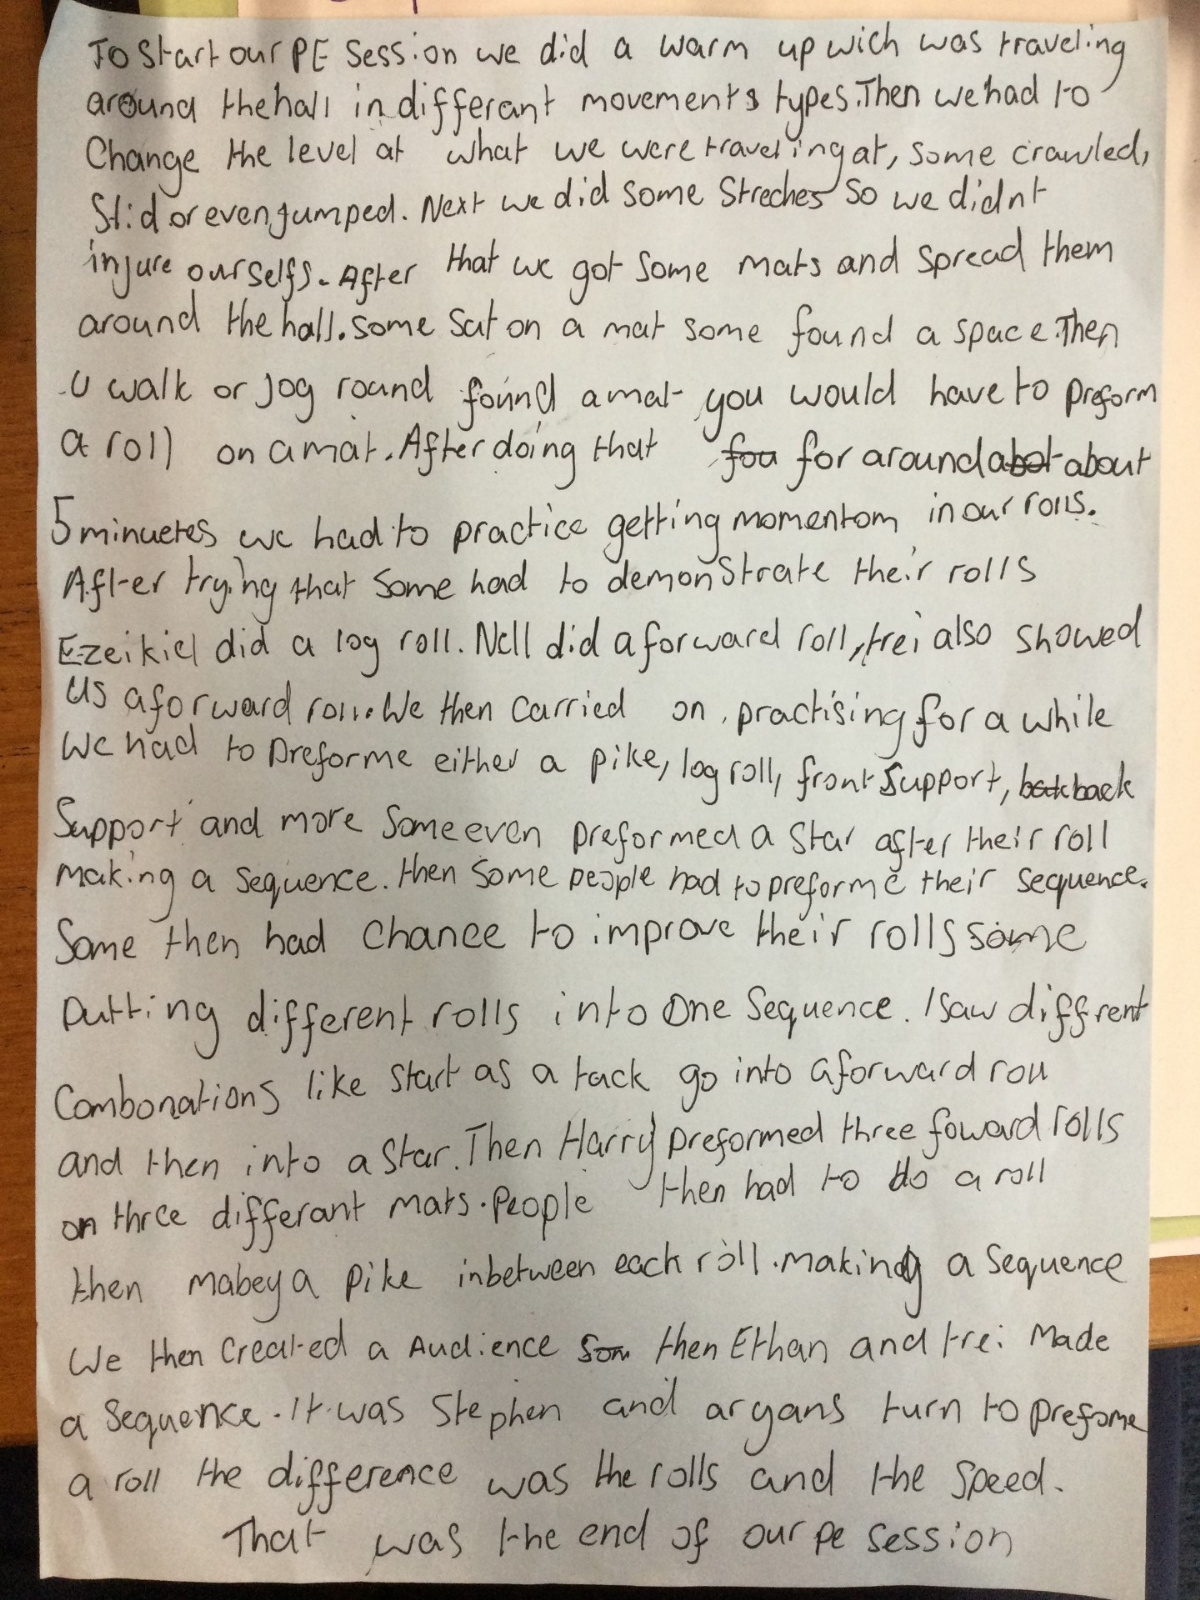 To start our PE Session we did a warm up wich was traveling
around the hall in differant movements types. Then we had to
Change the level at what we were traveling at, some crawled,
Slid or even jumped. Next we did some Streches So we didnt
injure ourselfs. After that we got some mats and spread them
around the hall. some sat on a mat some found a space. Then
U walk or jog round found a mat you would have to preform
a roll on a mat. After doing that fou for around abot about
5 minuetes we had to practice getting momentom in our rolls.
After trying that some had to demonstrate their rolls
Ezeikiel did a log roll. Nell did a forward roll, trei also showed
us a forward roll. We then carried on practising for a while
We had to preforme either a pike, log roll, front support, bak back
Support and more some even preformed a star after their roll
making a sequence. then some people had to preforme their sequence.
Some then had chance to improve their rolls some
putting different rolls into one sequence. I saw diffrent
Combonations like start as a tuck go into a forward roll
and then into a star. Then Harry preformed three foward rolls
on three differant mats. People then had to do a roll
then mabey a pike inbetween each roll. making a sequence
We then created a Audience som then Ethan and trei Made
a sequence. It was Stephen and aryans turn to prefome
a roll the difference was the rolls and the speed.
That was the end of our pe session